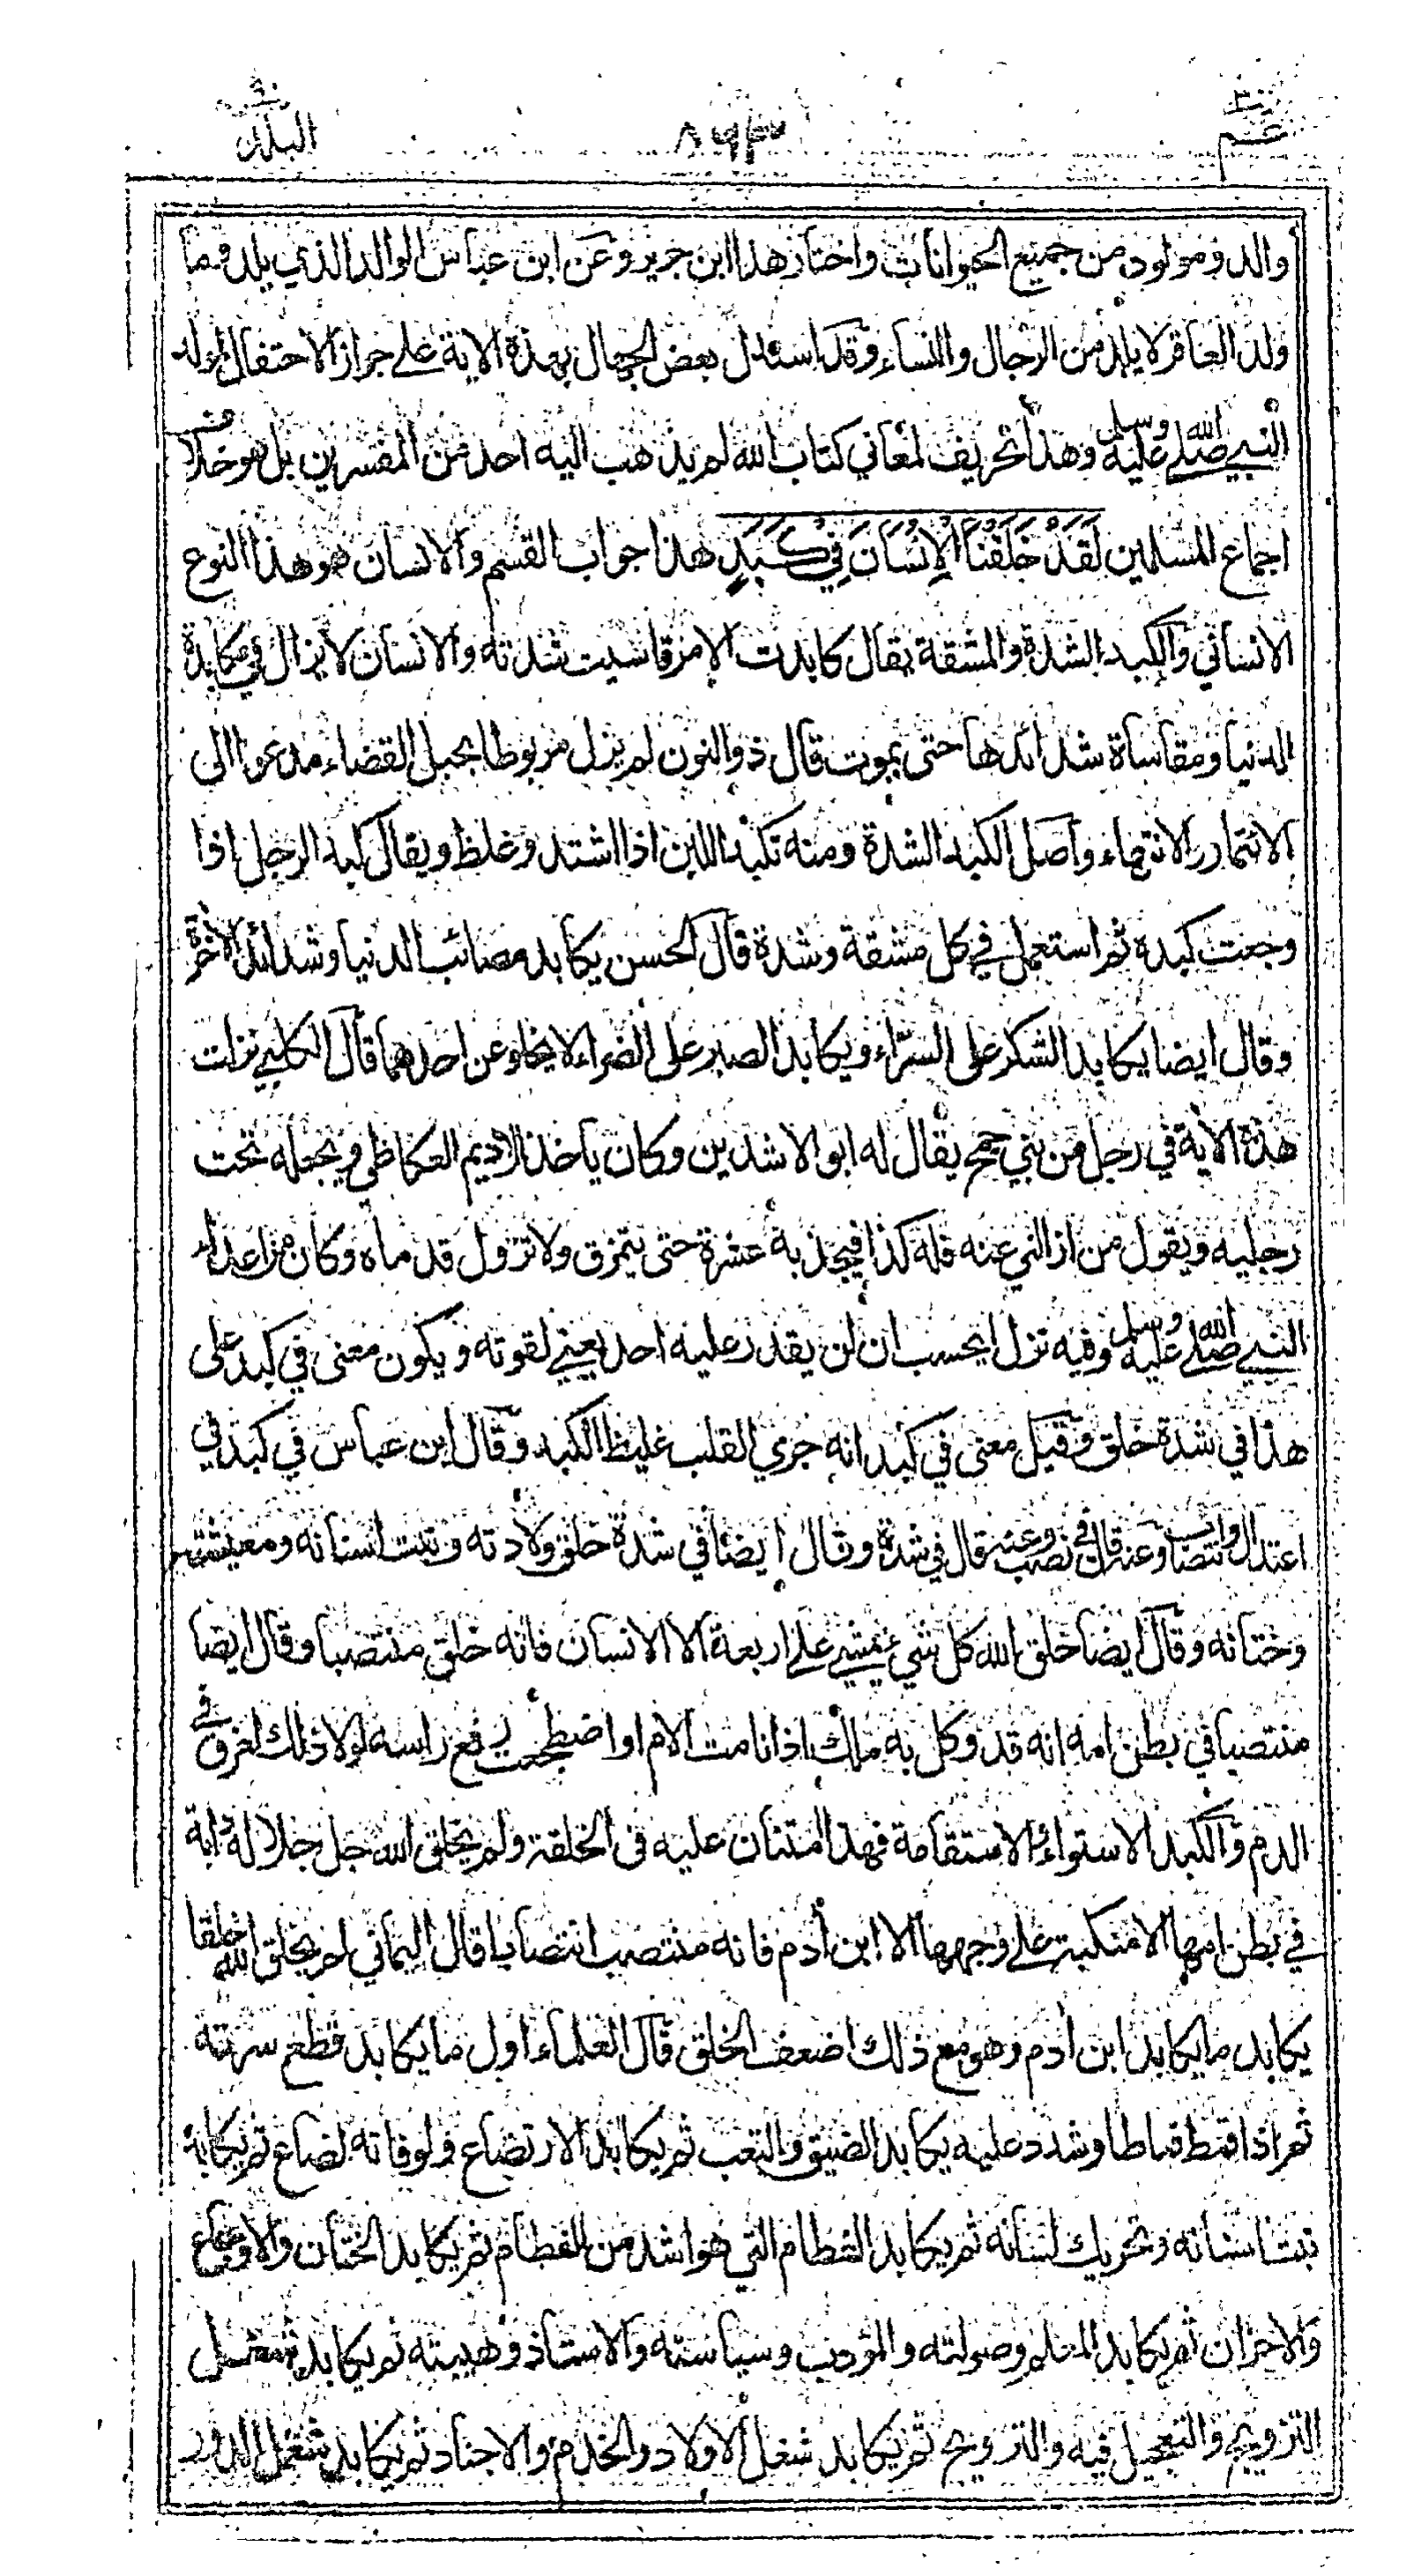 عم ٣٠
٨٦٣
البلد ٩٠
والد ومولود من جميع الحيوانات واختار هذا ابن جرير وعن ابن عباس الوالد الذي يلد وما
ولد العاقر لا يلد من الرجال والنساء وقد استدل بعض الجهال بهذة الاية على جواز الاحتفال لمولد
النبي صلى الله عليه وسلم وهذا تحريف لمعاني كتاب الله لم يذهب اليه احد من المفسرين بل هو خلاف
اجماع المسلمين لَقَدْ خَلَقْنَا الْإِنْسَانَ فِي كَبَدٍ هذا جواب القسم والانسان هو هذا النوع
الانساني والكبد الشدة والمشقة يقال كابدت الامر قاسيت شدته والانسان لا يزال في مكابدة
الدنيا ومقاساة شدائدها حتى يموت قال ذو النون لم يزل مربوطا بحبل القضاء مدعوا الى
الائتمار والانتهاء واصل الكبد الشدة ومنه تكبد اللبن اذا اشتد وغلظ ويقال كبد الرجل اذا
وجعت كبده ثم استعمل في كل مشقة وشدة قال الحسن يكابد مصائب الدنيا وشدائد الاخرة
وقال ايضا يكابد الشكر على السراء ويكابد الصبر على الضراء لا يخلو عن احدهما قال الكلبي نزلت
هذة الاية في رجل من بني جمح يقال له ابو الاشدين وكان ياخذ الاديم العكاظي ويجعله تحت
رجليه ويقول من ازالني عنه فله كذا فيجذبه عشرة حتى يتمزق ولا تزول قدماه وكان من اعداء
النبي صلى الله عليه وسلم وفيه نزل ايحسب ان لن يقدر عليه احد يعني لقوته ويكون معنى في كبد على
هذا في شدة خلق وقيل معنى في كبد انه جري القلب غليظ الكبد وقال ابن عباس في كبد في
اعتدال وانتصاب وعنه قال في نصب وعنه قال في شدة وقال ايضا في شدة خلق ولادته ونبت اسنانه ومعيشته
وختانه وقال ايضا خلق الله كل شيء يمشي على اربعة الا الانسان فانه خلق منتصبا وقال ايضا
منتصبا في بطن امه انه قد وكل به ملك اذا نامت الام او اضطجعت رفع راسه لولا ذلك لغرق في
الدم والكبد الاستواء والاستقامة فهذا امتنان عليه في الخلقة ولم يخلق الله جل جلاله دابة
في بطن امها الا منكبة على وجهها الا ابن آدم فانه منتصب انتصابا قال اليماني لم يخلق الله خلقا
يكابد ما يكابد ابن آدم وهو مع ذلك اضعف الخلق قال العلماء اول ما يكابد قطع سرته
ثم اذا قمط قماطا وشدد عليه يكابد الضيق والتعب ثم يكابد الارتضاع ولو فاته لضاع ثم يكابد
نبت اسنانه وتحريك لسانه ثم يكابد الفطام التي هو اشد من الفطام ثم يكابد الختان والاوجاع
والاحزان ثم يكابد المعلم وصولته والمؤدب وسياسته والاستاذ وهيبته ثم يكابد شغل
التزويج والتعجيل فيه والترويج ثم يكابد شغل الاولاد والخدم والاجناد ثم يكابد شغل الدور